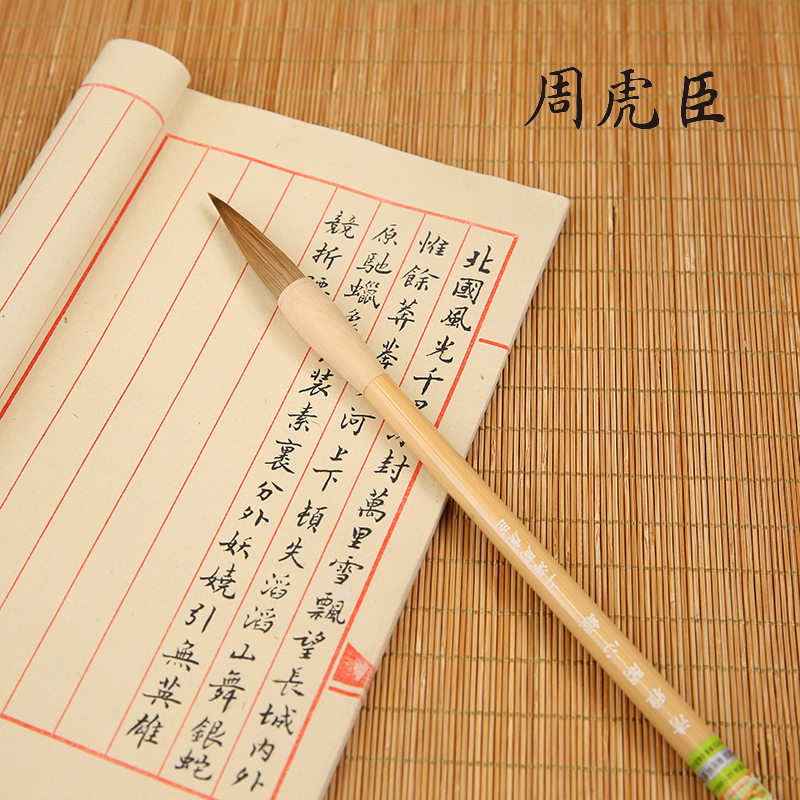 周虎臣
北國風光千里封萬里雪飄望長城內外
惟餘莽莽河上下頓失滔滔山舞銀蛇
原馳蠟象裝素裹分外妖嬈引無英雄
競折腰